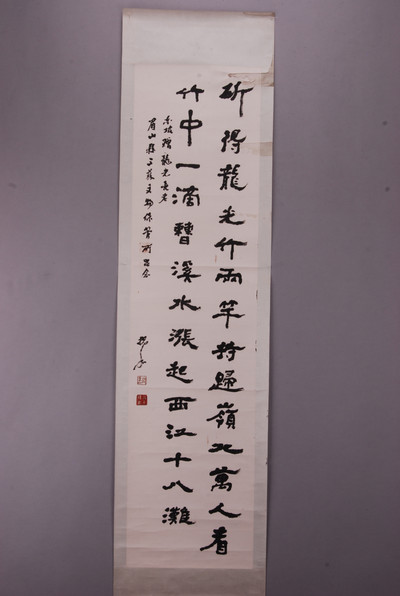 斫得龍光竹兩竿持歸嶺北萬人看
竹中一滴曹溪水漲起西江十八灘
東坡贈龍光長老
眉山縣三蘇文物保管所留念